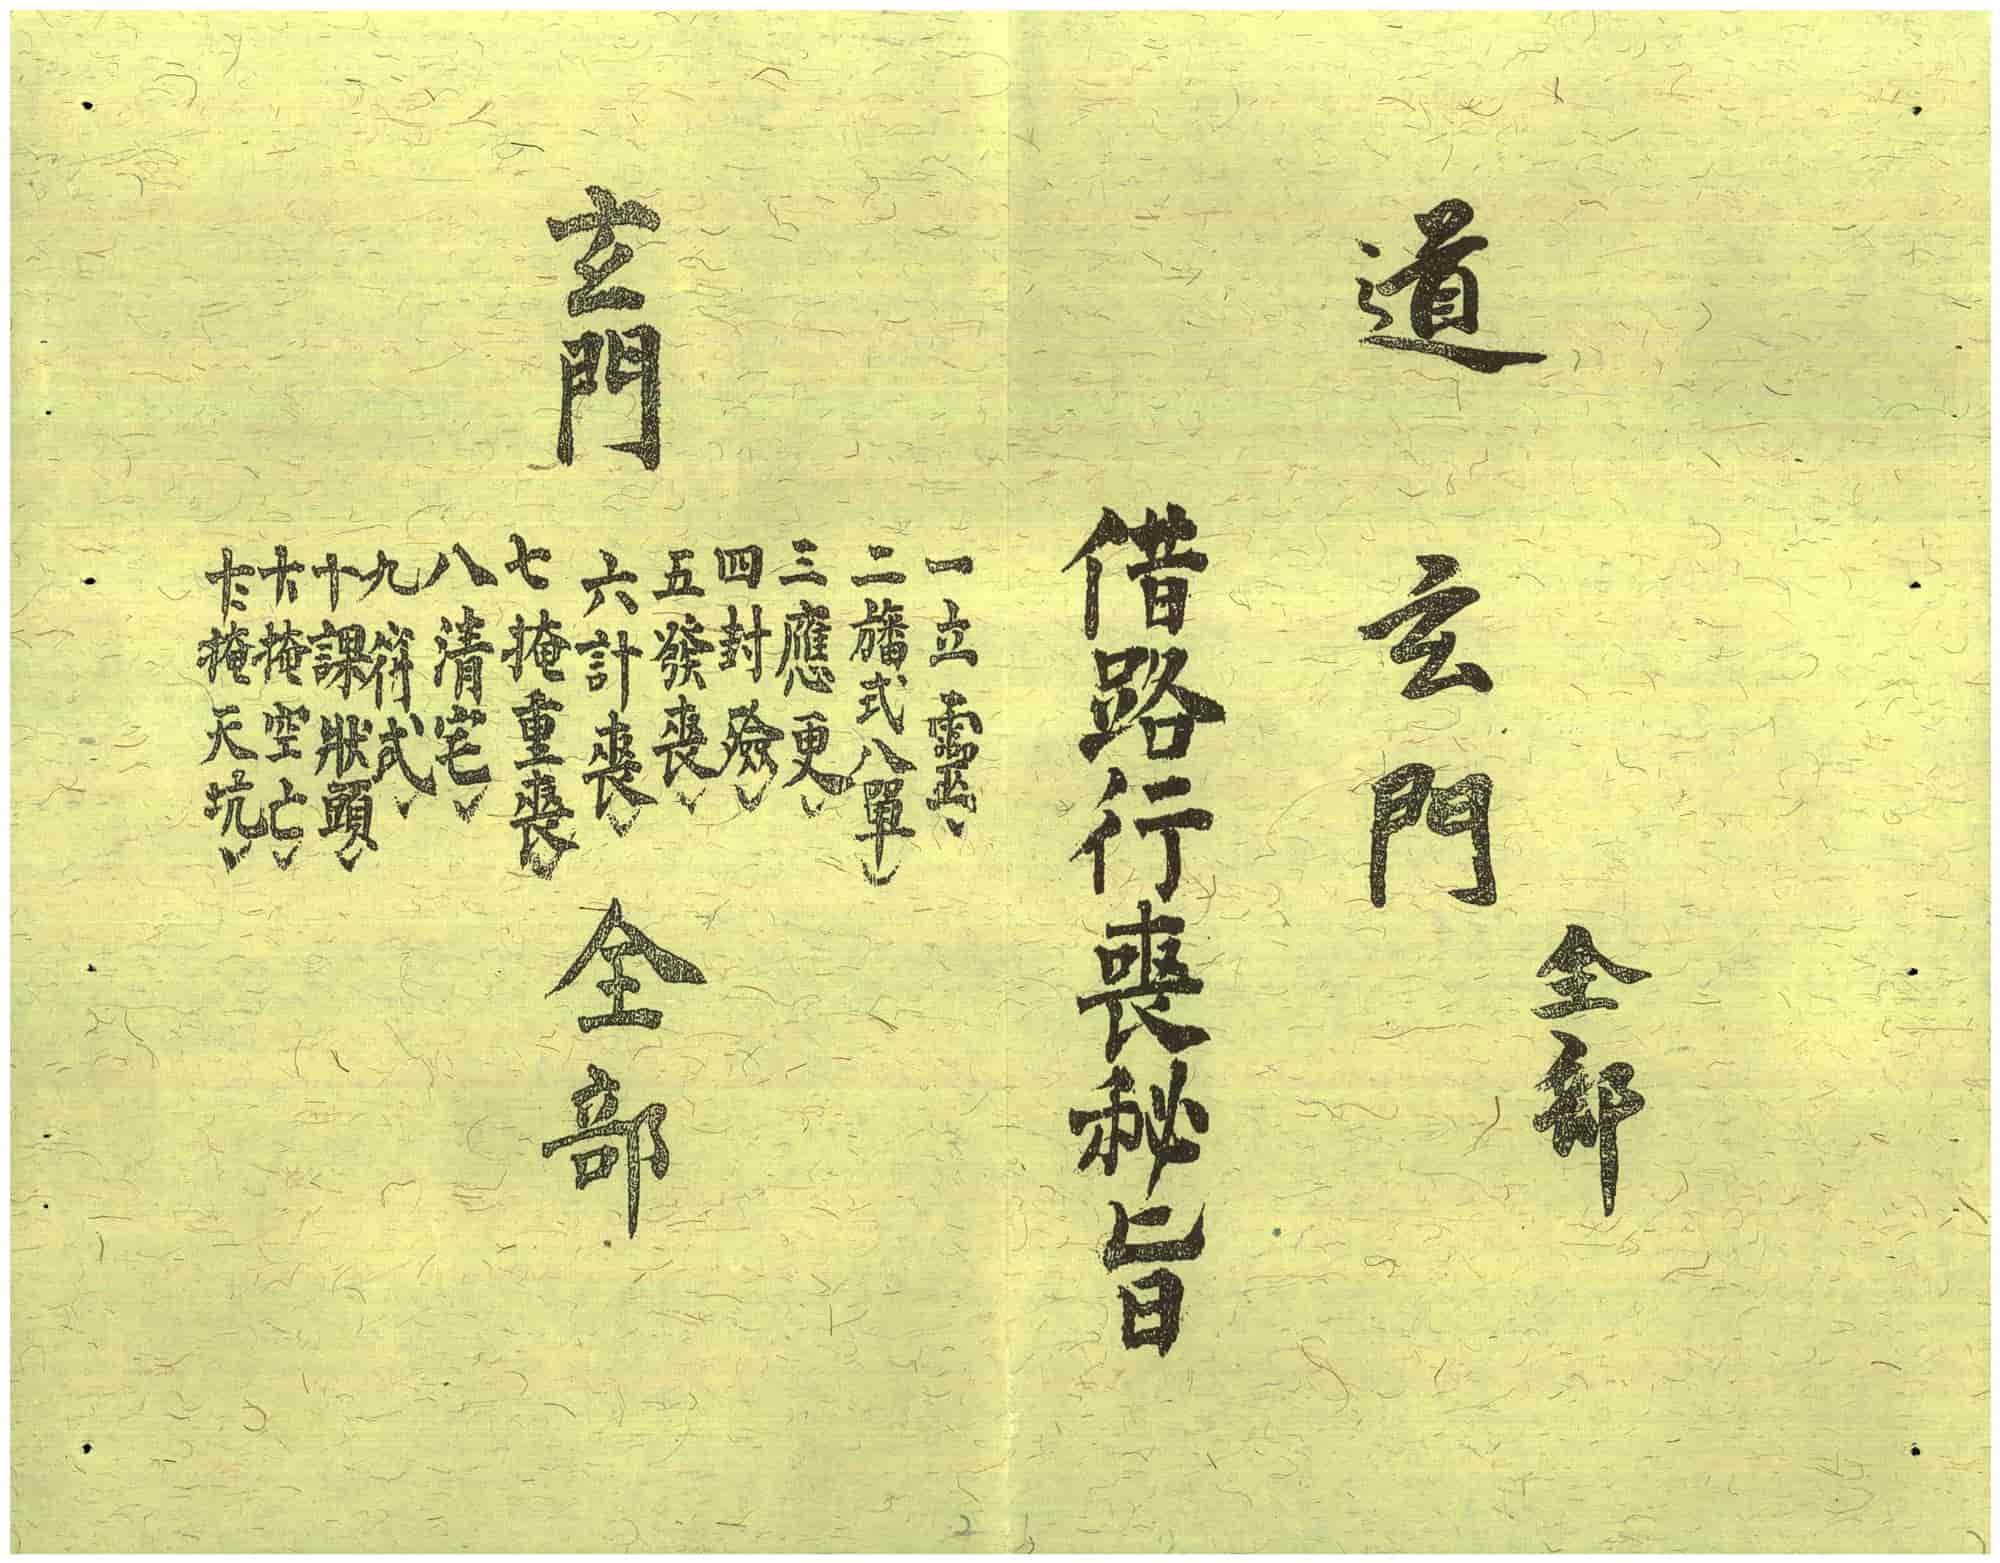 道
玄門
全部
借路行喪秘旨
玄門
一立靈
二旛式八單
三應更
四封殮
五發喪
六計喪
七掩重喪
八清宅
九符式
十課狀頭
十一掩空亡
十二掩天坑
全部
2 1